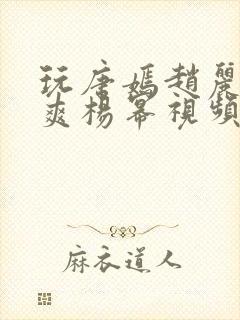 玩唐嫣趙麗
爽楊冪視頻
麻衣道人